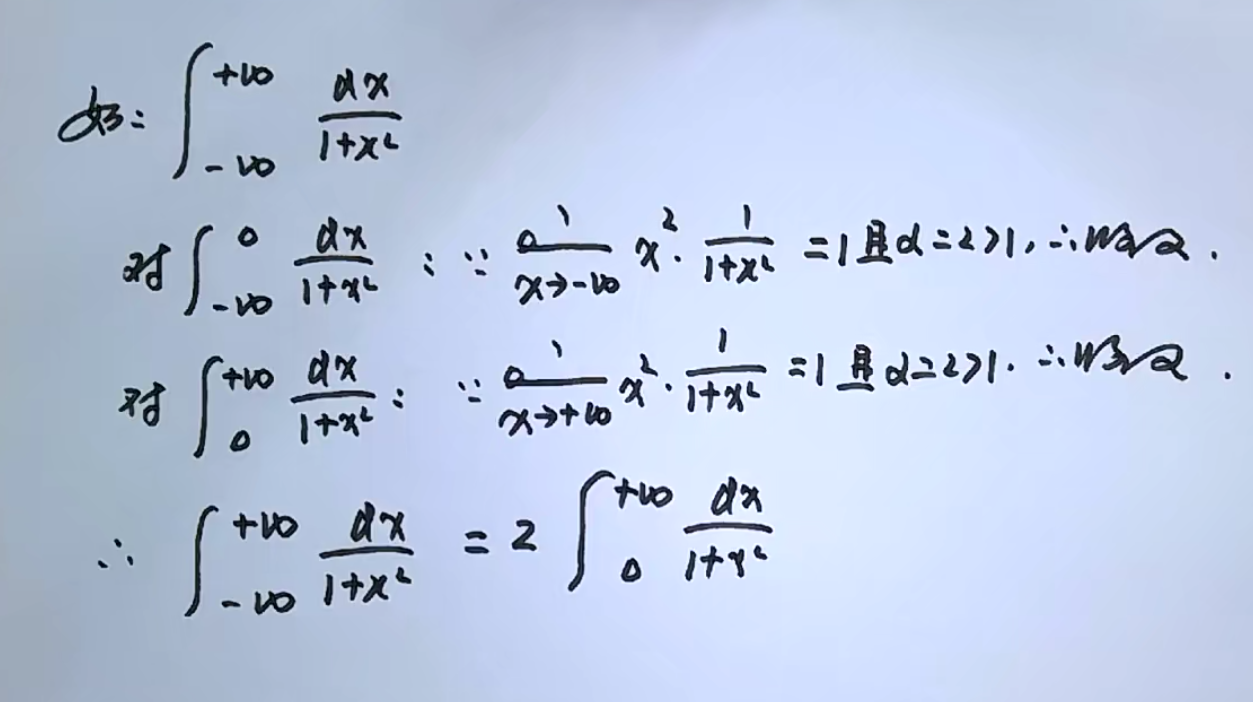 如: ∫_{-∞}^{+∞} dx/(1+x²)
对 ∫_{-∞}^{0} dx/(1+x²) : ∵ lim_{x→-∞} x²·1/(1+x²) = 1 且 α=2>1, ∴收敛.
对 ∫_{0}^{+∞} dx/(1+x²) : ∵ lim_{x→+∞} x²·1/(1+x²) = 1 且 α=2>1. ∴收敛.
∴ ∫_{-∞}^{+∞} dx/(1+x²) = 2 ∫_{0}^{+∞} dx/(1+x²)